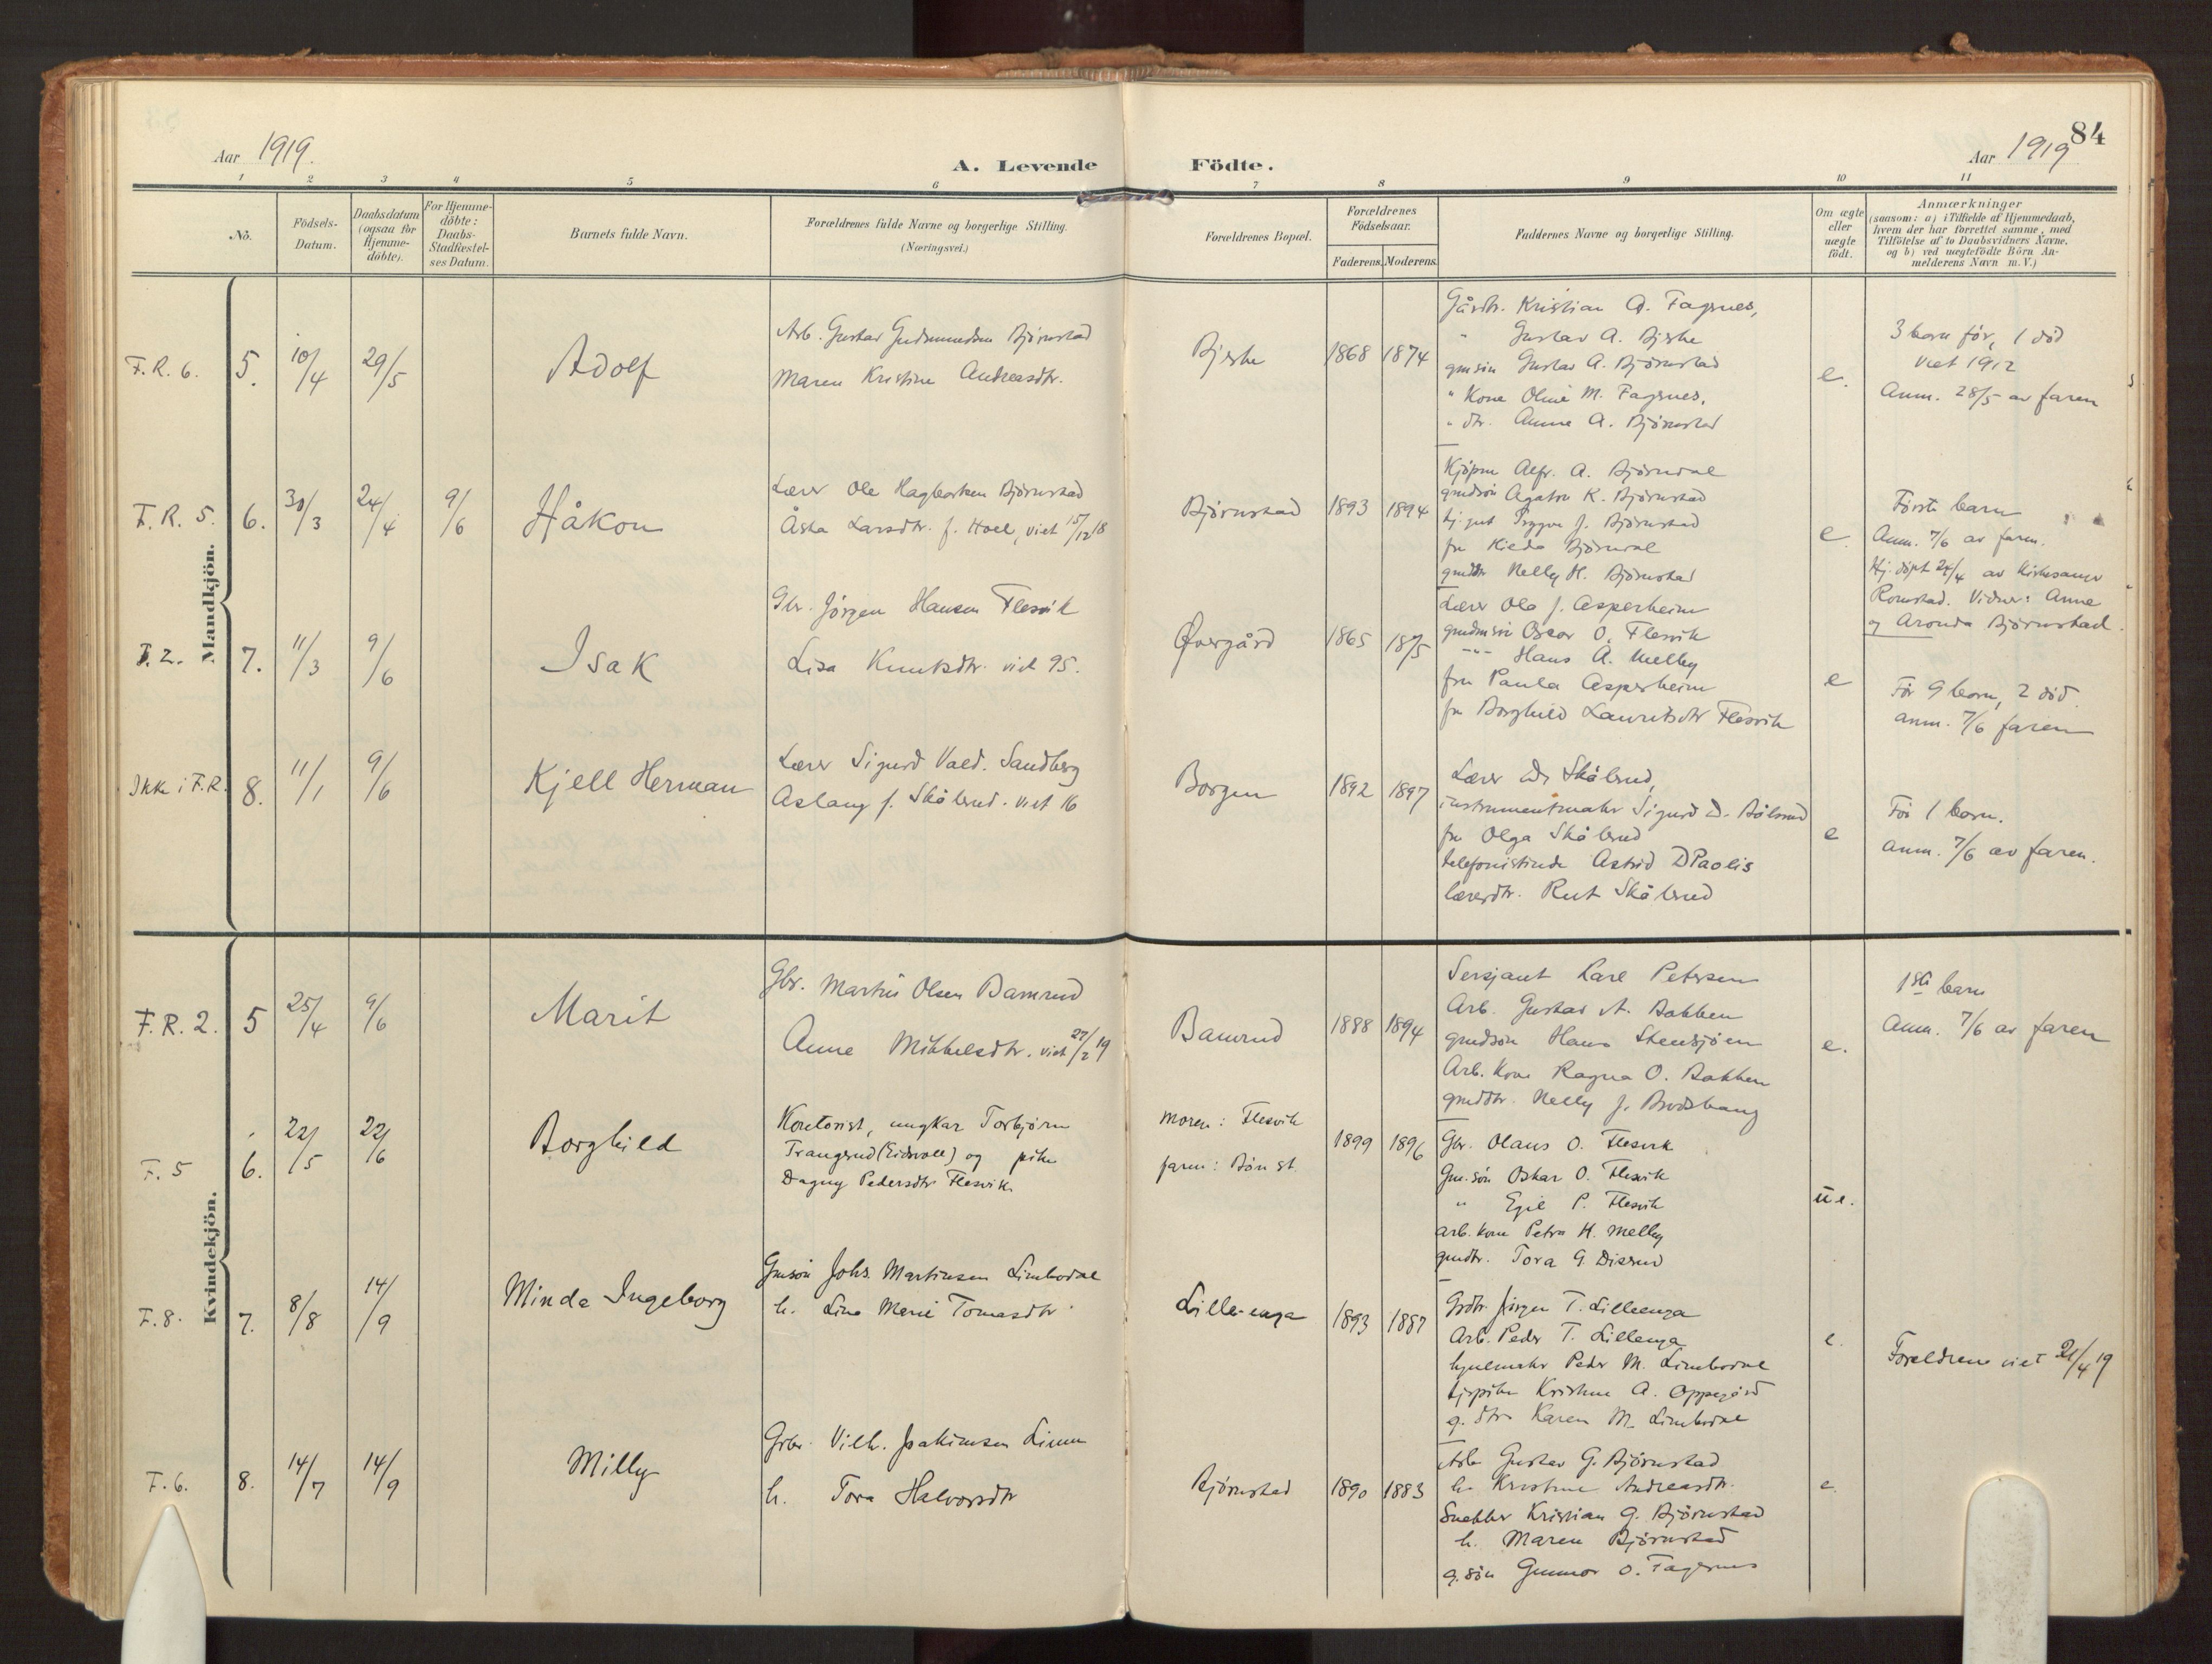 84
Aar 1919.
A. Levende Födte.
Aar 1919
1 2 3 4 5 6 7 8 9 10 11
No.
Födsels-
Datum.
Daabsdatum
(ogsaa for
Hjemme-
döbte).
For Hjemme-
döbte:
Daabs-
Stadfæstel-
ses Datum.
Barnets fulde Navn.
Forældrenes fulde Navne og borgerlige Stilling.
(Næringsvei.)
Forældrenes Bopæl.
Forældrenes
Födselsaar.
Faderens. Moderens.
Faddernes Navne og borgerlige Stilling.
Om ægte
eller
uægte
födt.
Anmærkninger
(saasom: a) i Tilfælde af Hjemmedaab,
hvem der har forrettet samme, med
Tilföielse af to Daabsvidners Navne,
og b) ved uægtefödte Börn An-
melderens Navn m. V.)
Mandkjön.
F.R. 6. 5. 10/4 29/5
Adolf
Arb. Gustav Gudmundsen Bjørnstad
Maren Kristine Andreasdtr.
Bjerke
1868 1874
Kristian A. Fagernes,
" Gustav A. Bjerke
gmsøn Gustav A. Bjørnstad
" Kone Oline M. Fagernes.
" dtr. Anna A. Bjørnstad
e.
3 barn før, 1 død
viet 1912
Anm. 28/5 av faren
F.R. 5. 6. 30/3 24/4 9/6
Håkon
Lærer Ole Hagbartsen Bjørnstad
Åsta Larsdtr. f. Hoel, viet 15/12 18
Bjørnstad
1893 1894
Kjøpm Alfr. A. Bjørndal
Agaton K. Bjørnstad
Trygve J. Bjørnstad
fru Bjørndal
Nelly H. Bjørnstad
e.
Første barn
Anm. 7/6 av faren.
Hj. døpt 24/4 av Kirkesanger
Romstad. Vidner: Anne
og Aronda Bjørnstad.
F. 2. 7. 11/3 9/6
Isak
Gbr. Jörgen Hansen Flesvik
Lisa Knutsdtr. viet 95.
Øvergård
1865 1875
Lærer Ole J. Asperheim
Oscar O. Flesvik
-"- Hans A. Melby
fru Paula Asperheim
fr Borghild Lauritsdtr Flesvik
e
Før 9 barn, 2 död.
anm. 7/6 faren
Ikke i F.R. 8. 11/1 9/6
Kjell Herman
Lærer Sigurd Vald. Sandberg
Aslaug f. Skålerud. viet 16
Borgen
1892 1897
Lærer Skålerud,
instrumentmaker Sigurd
fru Olga Skålerud
telefonistinde Astrid DPaolis
lærerdtr. Rut Skålerud
e
Før 1 barn.
anm. 7/6 av faren.
Kvindekjön.
F.R. 2. 5 25/4 9/6
Marit
Gbr. Martin Olsen Bamrud
Anne Mikkelsdtr. viet 27/2 19
Bamrud
1888 1894
Sersjant Karl Petersen
Arb. Gustav A. Bakken
gmdsøn Hans Stensjøen
Arb. Kone Ragna O. Bakken
Nelly J. Brodshaug
e.
1ste barn
Anm. 7/6 av faren
F. 5 6. 22/5 22/6
Borghild
Kontorist, ungkar Torbjørn
Trangsrud (Eidsvoll) og pike
Dagny Pedersdtr Flesvik
moren: Flesvik
faren: Bön st.
1899 1896
Gbr. Olaus O. Flesvik
Gm.søn Oskar O. Flesvik
" Egil P. Flesvik
arb. kone Petra H. Melby
gmdtr. Tora G. Disrud
ue.
F. 8. 7. 8/8 14/9
Minda Ingeborg
Gmsøn Johs. Martinsen Limbodal
h. Lina Marie Tomasdtr
Lille-enga
1893 1887
Jörgen T. Lilleenga
Arb. Peder T. Lillenga
hjulmaker Peder M. Limbodal
tjpike Kristine A. Oppegård
g. dtr. Karen M. Limbodal
e.
Foreldrene viet 21/4 19
F. 6. 8. 14/7 14/9
Milly
Gbr. Vilh. Joakimsen Linna
h. Tora Halvorsdtr
Bjørnstad
1890 1883
Arb Gustav G. Bjørnstad
h. Kristine Andreasdtr.
Snekker Kristian G. Bjørnstad
h. Maren Bjørnstad
g. søn Gunnar O. Fagernes
e.